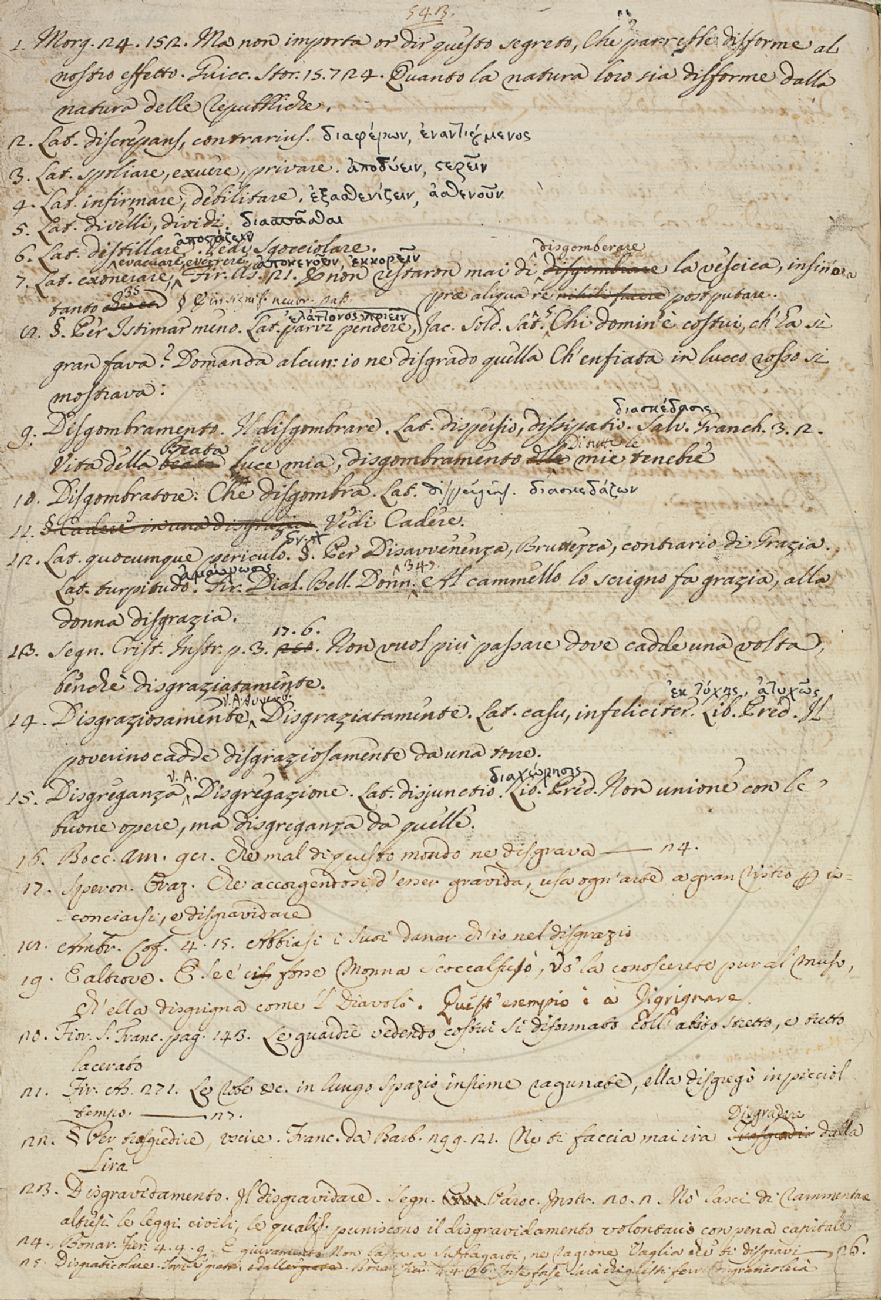 543.
1. Morg. 24. 152. Ma non importa or dir questo segreto, Che parrebbe disforme al
nostro effetto. Guicc. Stor. 15. 724. Quanto la natura loro sia disforme dalla
natura delle Repubbliche.
2. Lat. discrepans, contrarius. διαφέρων, ἐναντιούμενος
3. Lat. spoliare, exuere, privare. ἀποδύειν, στερεῖν
4. Lat. infirmare, debilitare. ἐξασθενίζειν, ἀσθενοῦν
5. Lat. divelli, dividi. διασπᾶσθαι
6. Lat. distillare. ἀποστάζειν Vedi Sgocciolare.
7. Lat. exonerare, evacuare, everrere, ἀποκενοῦν, ἐκκορεῖν Fir. As. 121. E non restaron mai di disgomberare la vescica, insino a
tanto 35
8. §. Per Istimar meno. Lat. parvi pendere, prae aliqua re postputare. Jac. Sold. Sat. 5. Chi domin'è costui, ch'ha sì
gran fava? Domanda alcun: io ne disgrado quella Ch'enfiata in lucco rosso si
mostrava:
9. Disgombramento. Il disgombrare. Lat. dispersio, dissipatio. διασκέδασις Salv. Granch. 3. 12.
Vita della Beata luce mia, disgombramento Di tutte le mie tenebre
10. Disgombratore: Che disgombra. Lat. διασκεδάζων
11. § Cadere in una disgrazia. Vedi Cadere.
12. Lat. quocumque periculo. §. Per Disavvenenza, Bruttezza, contrario di Grazia.
Lat. turpitudo. Fir. Dial. Bell. Donn. 347. Al cammello lo scrigno fa grazia, alla
donna disgrazia.
13. Segn. Crist. Instr. p. 3. 17. 6. Non vuol più passare dove cadde una volta,
benchè disgraziatamente.
14. Disgraziosamente V. A. Disgraziatamente. Lat. casu, infeliciter. ἐκ τύχης, ἀτυχῶς Lib. Pred. Il
poverino cadde disgraziosamente da una torre.
15. Disgreganza V. A. Disgregazione. Lat. disjunctio. διαχώρησις Lib. Pred. Non unione con le
buone opere, ma disgreganza da quelle.
16. Bocc. Am. Che mal di questo mondo ne disgrava —— 24.
17. Speron. Oraz. Che accorgendosi d'esser gravida, usa ogni arte a gran rischio
sconciarsi, e disgravidare
18. Ambr. Cof. 4. 15. Abbiasi i suoi danar ch'io nel disgrazio
19. E altrove. E se è forse Monna Scoccalfuso, Vo' la conoscerete pur al muso,
Ch'ella disgrigna come 'l Diavolo. Quest' esempio è a Digrignare.
20. Fior. S. Franc. pag. 143. Le guardie vedendo costui sì disumato coll'abito stretto, e tutto
lacerato
21. Fir. As. 271. Le robe &c. in lungo spazio insieme ragunate, ella disgregò in picciol
tempo. —— 27.
22. § Per Disgradire, uscire. Franc. da Barb. 299. 21. Nè ti faccia mai ira Disgradire dalla
Lira
23. Disgravidamento. Il disgravidare. Segn. Paroc. Instr. 20. 2. Nè lasci di rammentare
altresì le leggi civili, le quali puniscono il disgravidamento volontario con pena capitale
24. Bonar. Fier. 4. 4. 9. E giuramento non basta a suffragarti, nè ragione vaglia che ti disgravi —— 26.
25.